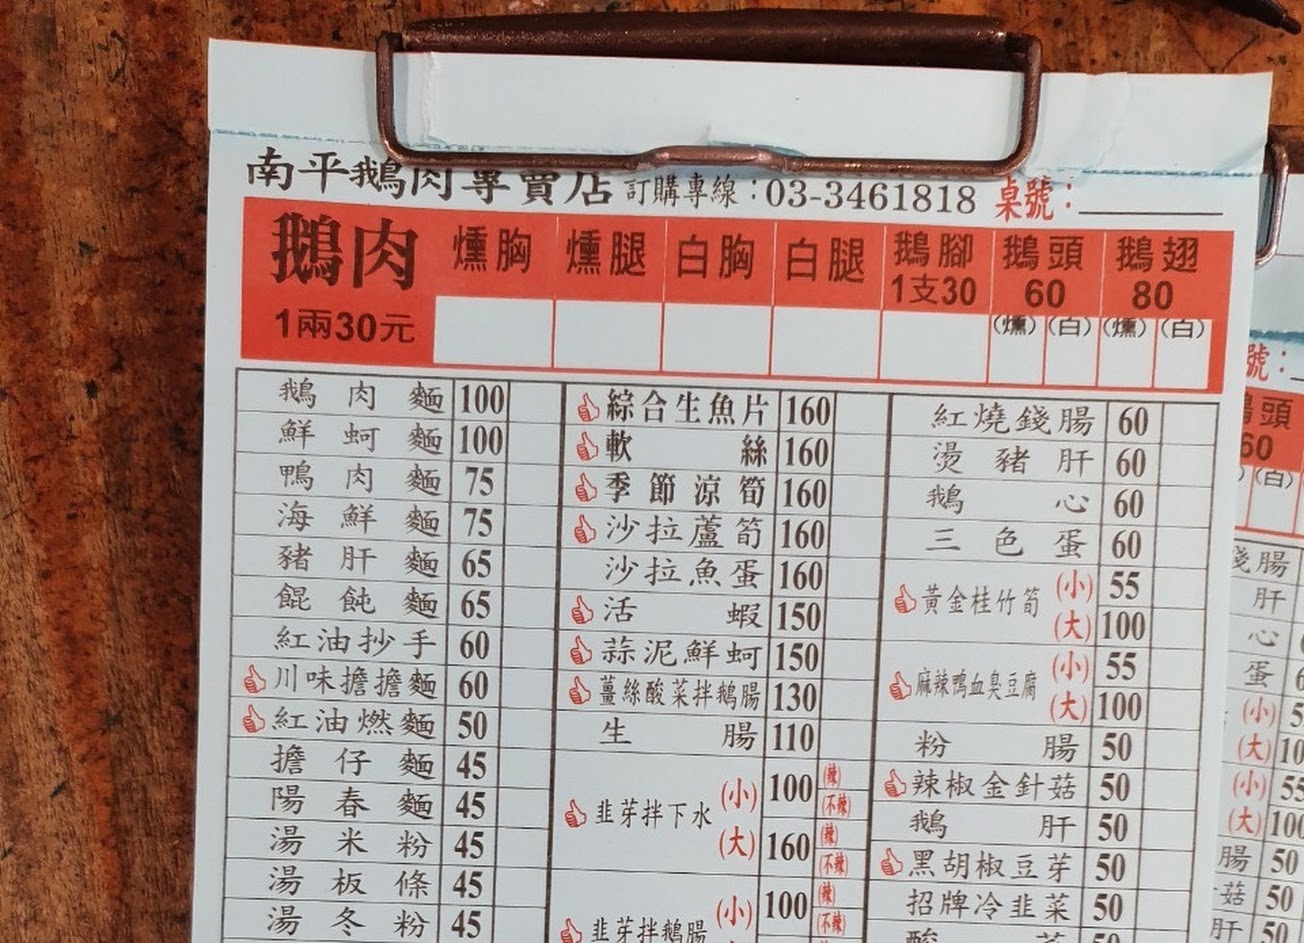 南平鵝肉專賣店 訂購專線：03-3461818 桌號：
鵝肉 1兩30元 燻胸 燻腿 白胸 白腿 鵝腳 1支30 鵝頭 60 鵝翅 80
(燻) (白) (燻) (白)
鵝肉麵 100
鮮蚵麵 100
鴨肉麵 75
海鮮麵 75
豬肝麵 65
餛飩麵 65
紅油抄手 60
川味擔擔麵 60
紅油燃麵 50
擔仔麵 45
陽春麵 45
湯米粉 45
湯板條 45
湯冬粉 45
綜合生魚片 160
軟絲 160
季節涼筍 160
沙拉蘆筍 160
沙拉魚蛋 160
活蝦 150
蒜泥鮮蚵 150
薑絲酸菜拌鵝腸 130
生腸 110
韭芽拌下水 (小) 100 (辣) (不辣)
(大) 160 (辣) (不辣)
韭芽拌鵝腸 (小) 100 (辣) (不辣)
紅燒錢腸 60
燙豬肝 60
鵝心 60
三色蛋 60
黃金桂竹筍 (小) 55
(大) 100
麻辣鴨血臭豆腐 (小) 55
(大) 100
粉腸 50
辣椒金針菇 50
鵝肝 50
黑胡椒豆芽 50
招牌冷韭菜 50
號：
頭
60
(白)
腸
肝
心
蛋
(小)
(大)
(小) 55
(大) 100
腸 50
菇 50
肝 50